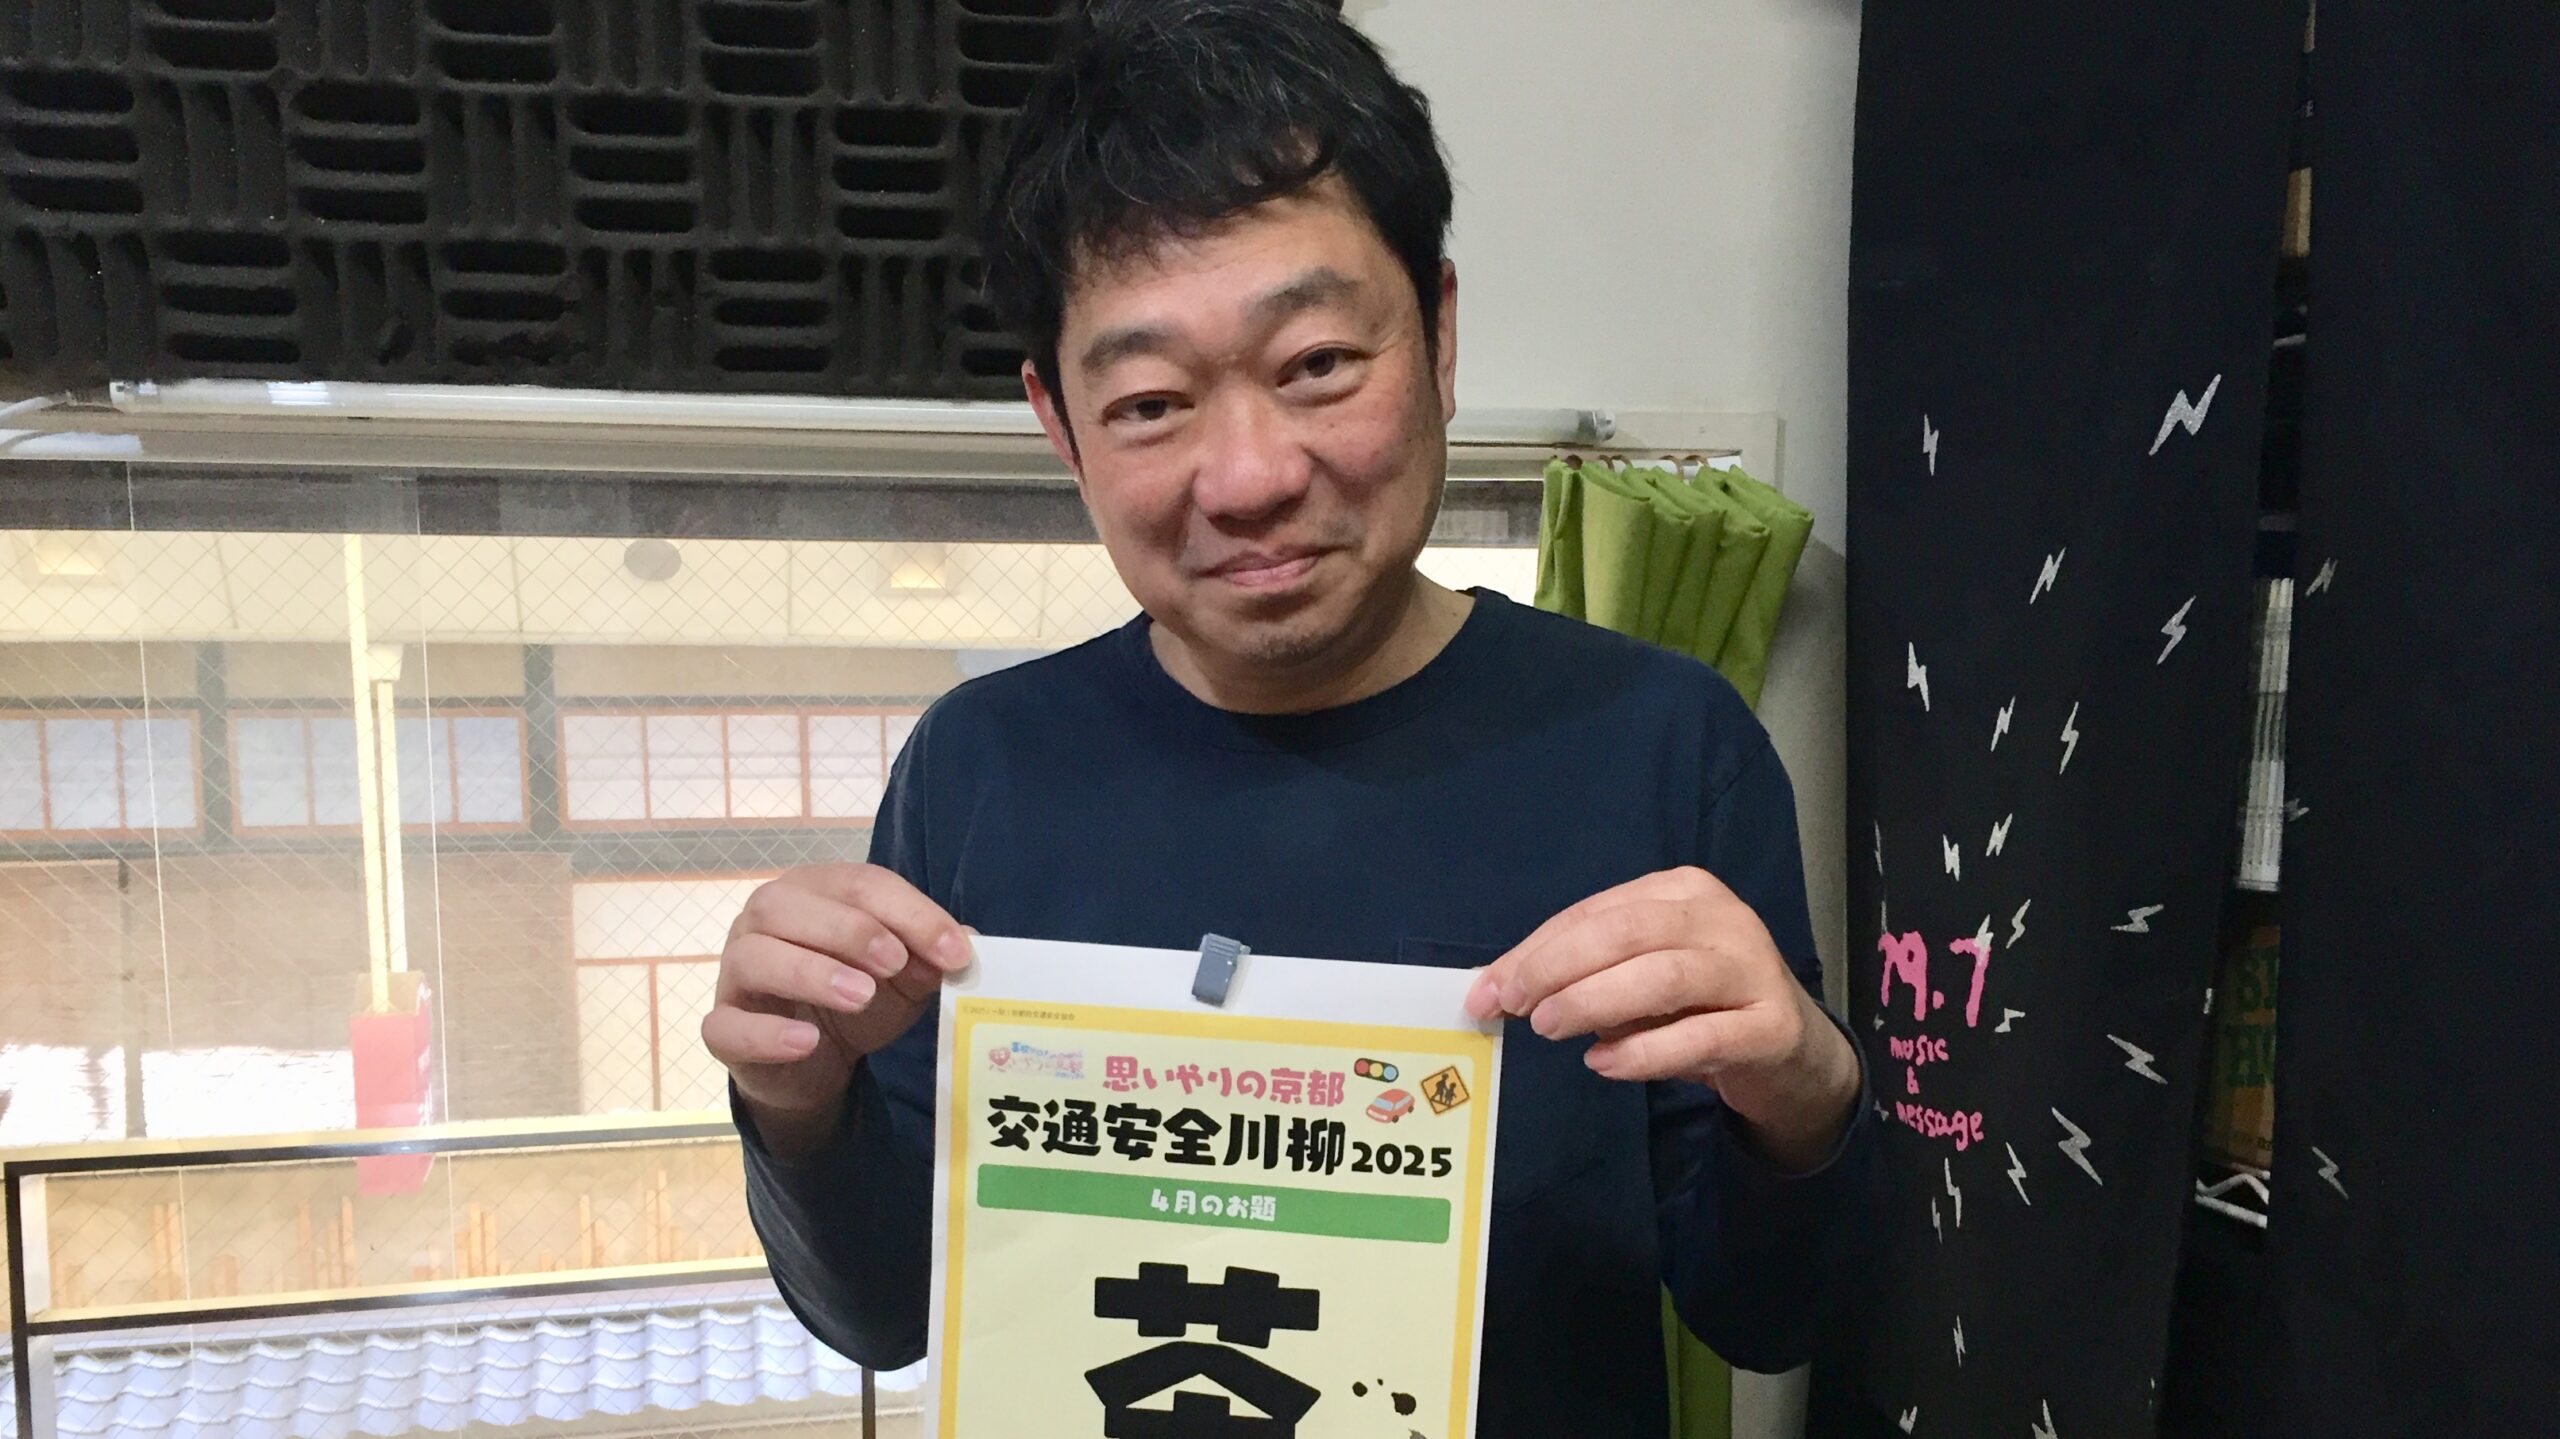 思いやりの京都
交通安全川柳2025
4月のお題
茶
79.7
music
&
message